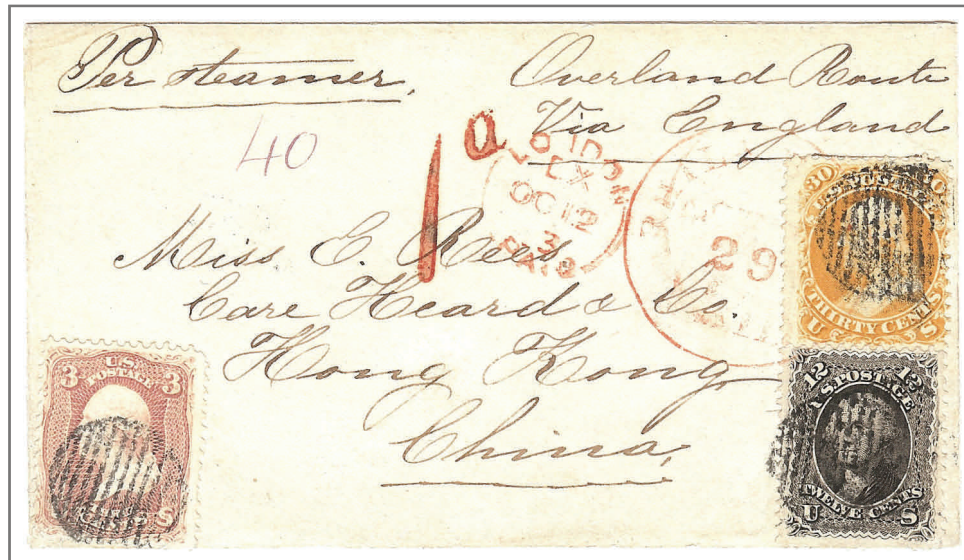 Per steamer,
Overland Route
Via England
40
1d
LONDON
EX
OC 12
3
PAID
29
Miss E. Rees
Care Heard & Co.
Hong Kong
China,
30
U.S. POSTAGE
THIRTY CENTS
U S
3 U.S. POSTAGE 3
CENTS
S
12 U.S. POSTAGE 12
TWELVE CENTS
U S